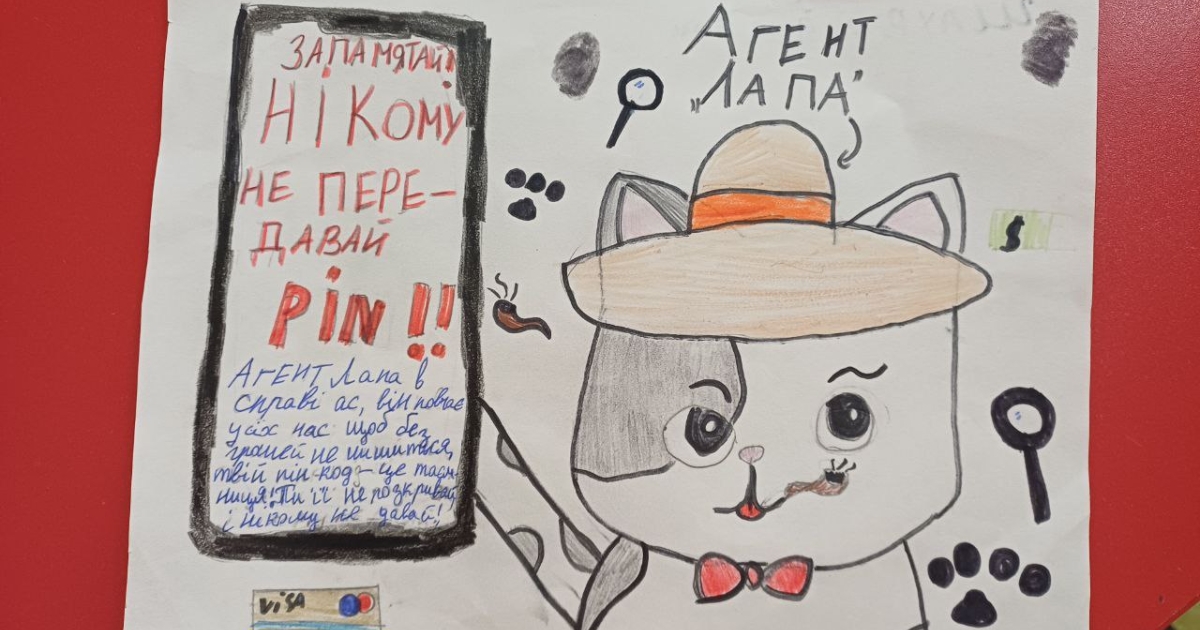 ЗАПАМЯТАЙ!
НІКОМУ
НЕ ПЕРЕ-
ДАВАЙ
PIN!!
Агент Лапа в
справі ас, він повчає
усіх нас щоб без
грошей не лишиться,
твій пін-код - це таєм-
ниця! Ти її не розкривай,
і нікому не давай!
VISA
АГЕНТ
„ЛАПА"
$